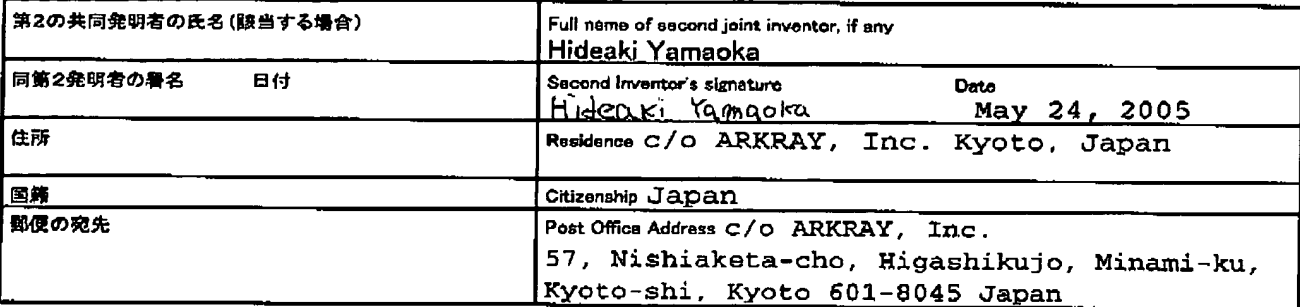 第2の共同発明者の氏名(該当する場合)
Full name of second joint inventor, if any
Hideaki Yamaoka
同第2発明者の署名 日付
Second Inventor's signature Date
Hideaki Yamaoka May 24, 2005
住所
Residence c/o ARKRAY, Inc. Kyoto, Japan
国籍
Citizenship Japan
郵便の宛先
Post Office Address c/o ARKRAY, Inc.
57, Nishiaketa-cho, Higashikujo, Minami-ku,
Kyoto-shi, Kyoto 601-8045 Japan